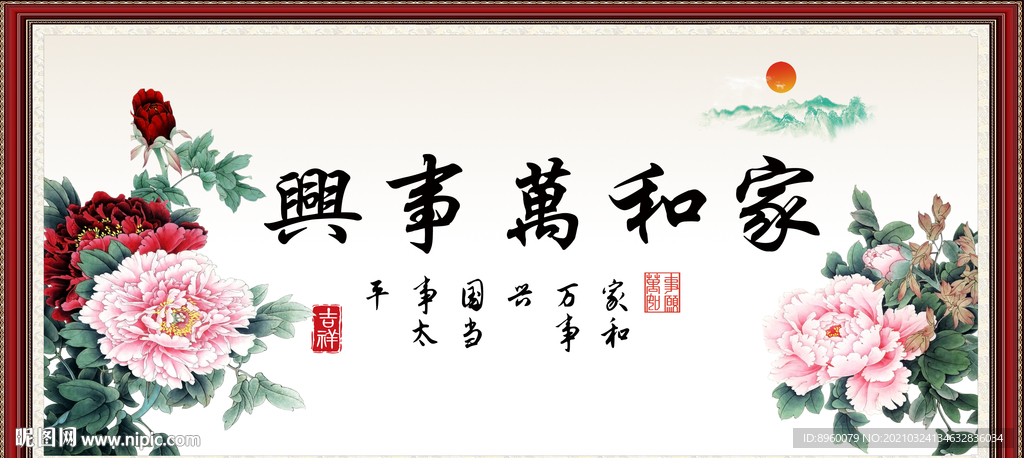 家和萬事興
家和
万事
兴
国当
事太
平
吉祥
昵图网 www.nipic.com
ID:8960079 NO:20210324134632836034